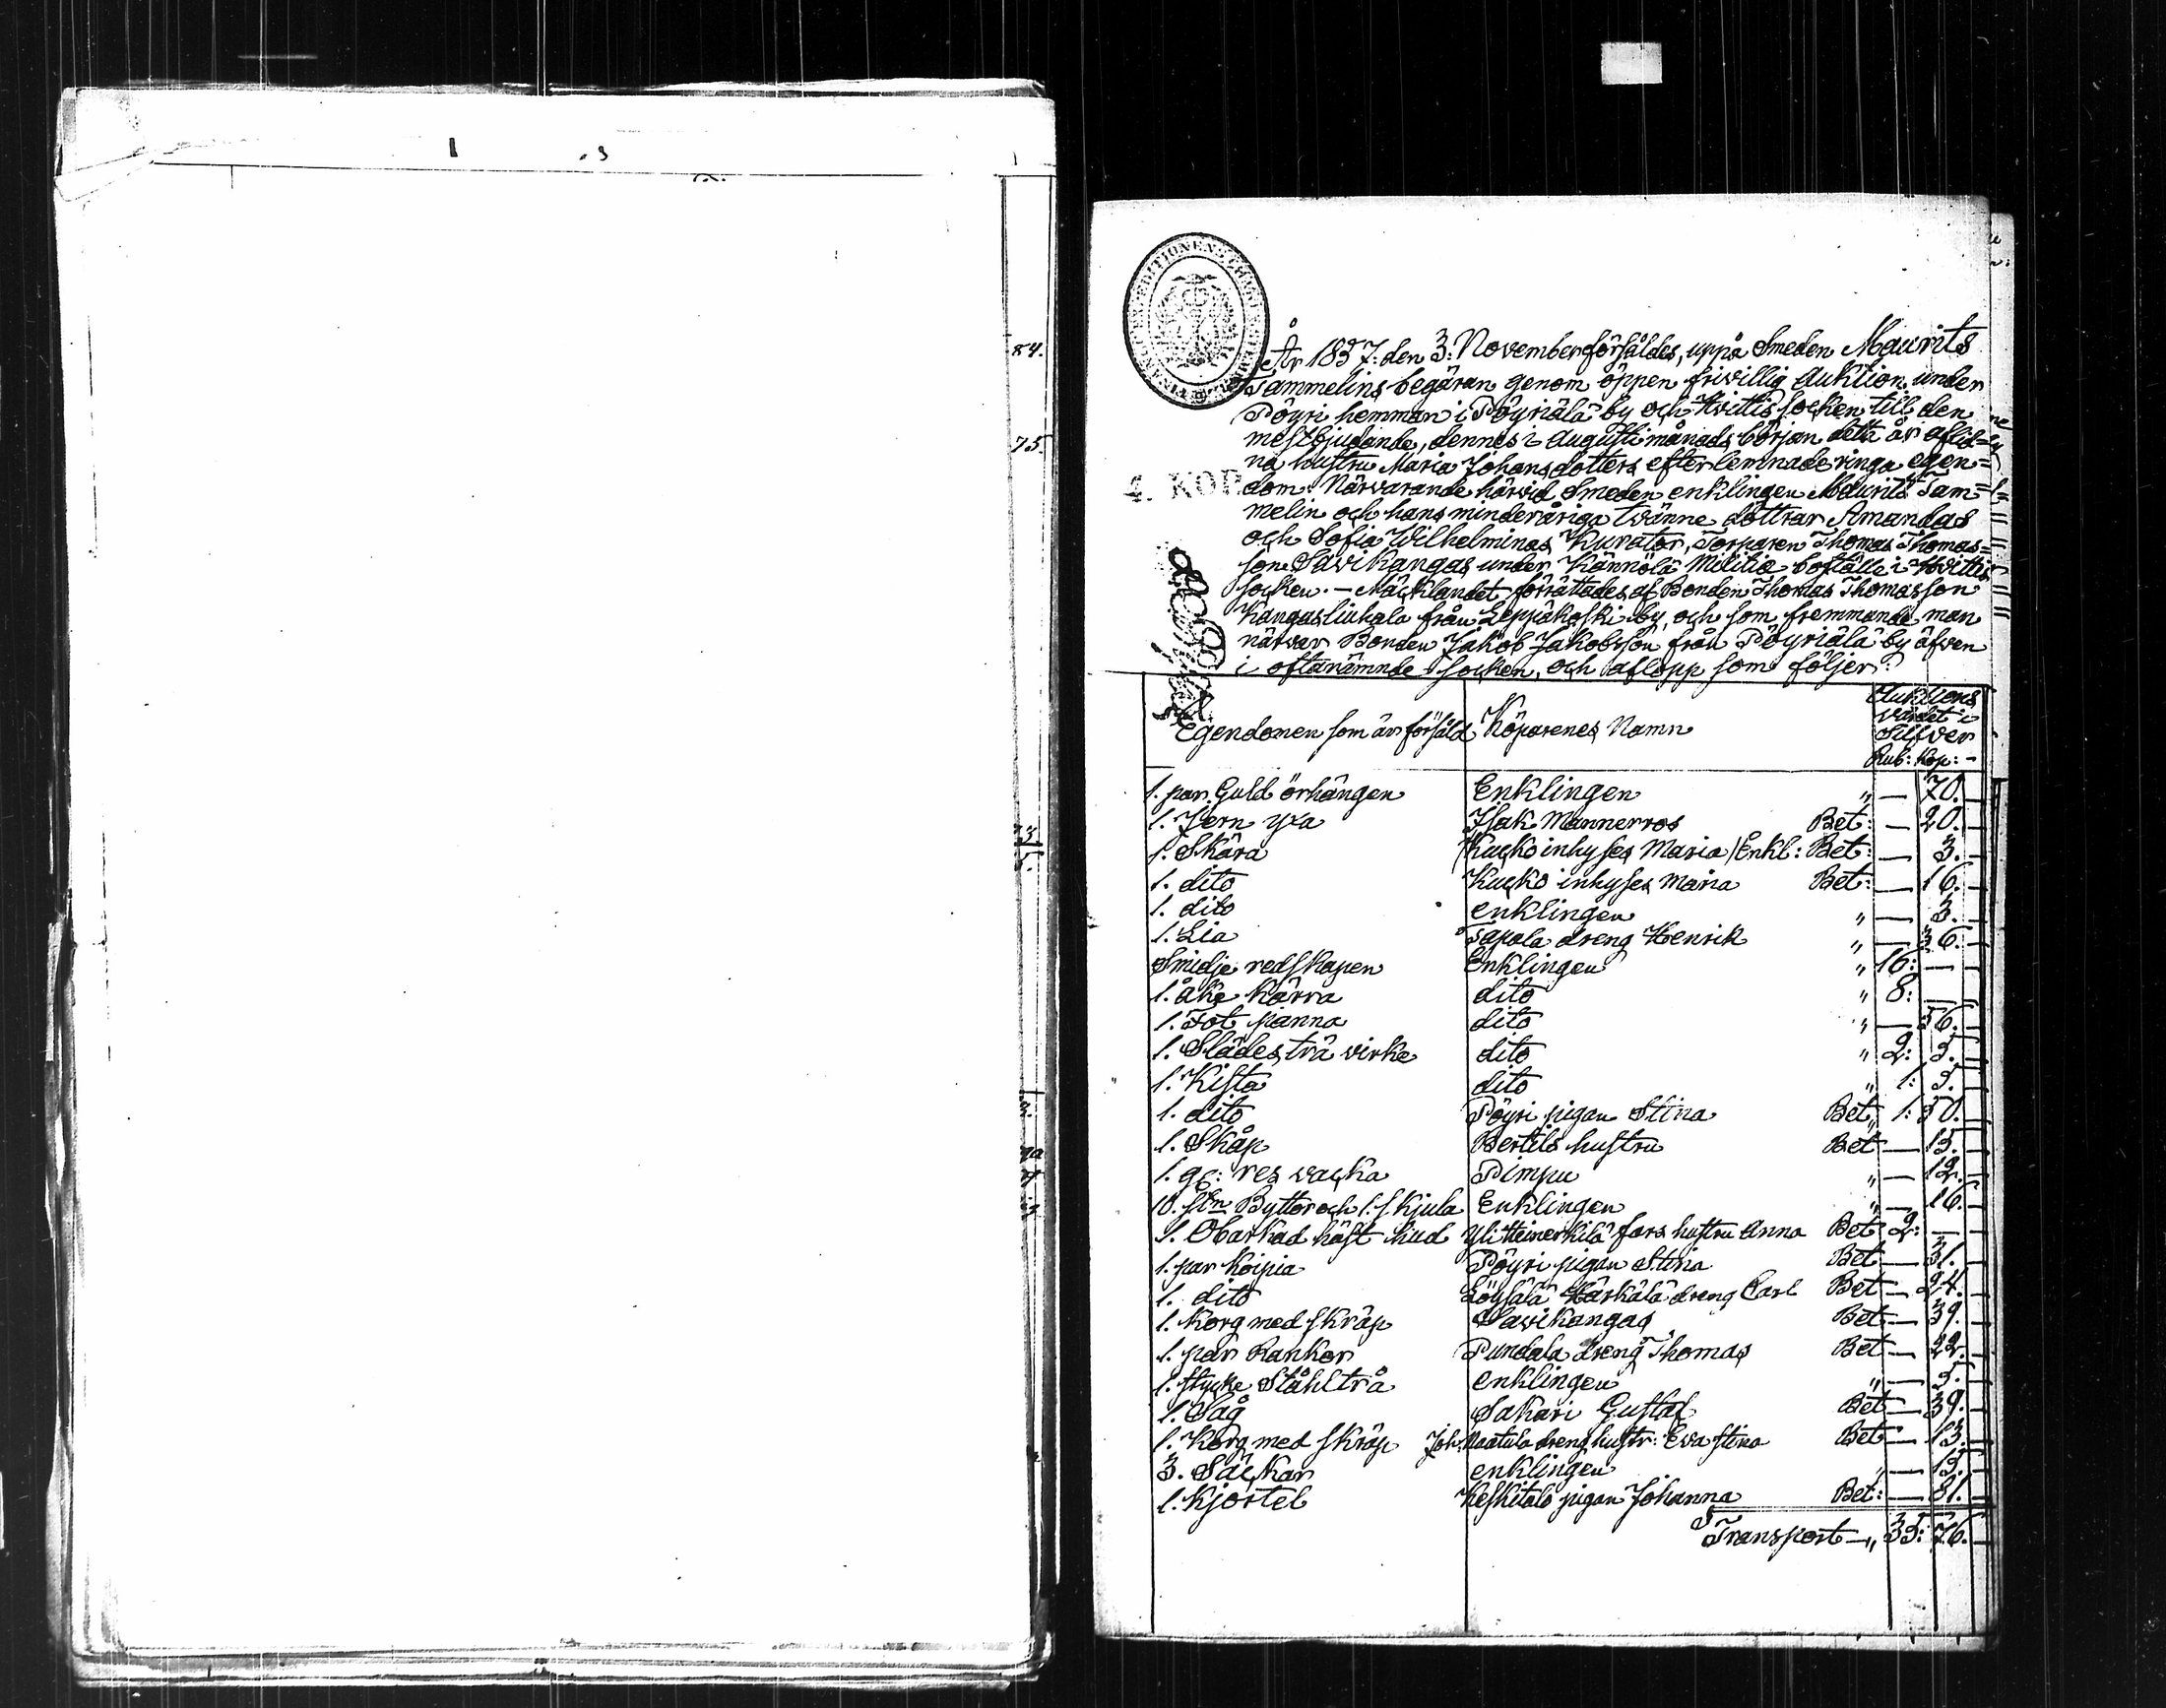 84.
75.
4. KOP
År 1857: den 3: November försåldes, uppå Smeden Maurits
Tammelins begäran genom öppen friwillig Auktion under
Pöyri hemman i Pöyriälä by och Hvittis socken till den
mestbjudande, dennes i Augusti månads början detta år aflid=
na hustru Maria Johansdotters efterlemnade ringa egen=
dom. Närwarande härvid Smeden enklingen Maurits Tam=
melin och hans minderåriga twänne döttrar Amandas
och Sofia Wilhelminas Kurator, Torparen Thomas Thomas=
son Sawikangas under Kännölä Militie boställe i Hvittis
socken. — Mäcklandet förättades af Bonden Thomas Thomasson
Kangasliukala från Leppäkoski by, och som fremmande man
närvar Bonden Jakob Jakobsson från Pöyriälä by äfwen
i oftanämnde socken, och aflopp som följer:
Egendomen som är försåld Köparenes Namn Auktions
värdet i
Silfwer
Rub: Kop: -
1. par Guld örhängen Enklingen „ — 70. —
1. Jern yxa Isak Mannerros Bet: — 20. —
1. Skära Kucko inhyses Maria / Enkl: Bet: — 3. —
1. dito Kucko inhyses Maria Bet: — 16. —
1. dito enklingen „ — 3. —
1. Lia Tapola dreng Henrik „ — 36. —
Smidje redskapen Enklingen „ 16: — —
1. åke kärra dito „ 8: — —
1. Fot panna dito „ — 56. —
1. Slädes trä virke dito „ 2: 5. —
1. Kista dito „ 1: 5. —
1. dito Pöyri pigan Stina Bet „ 1: 50. —
1. Skåp Bertils hustru Bet — 15. —
1. res vacka Pimpu „ — 12. —
10. Byttor och 1. skjula Enklingen „ — 16. —
1. Obarkad häst hud fars hustru Anna Bet 2: — —
1. par Koipia Pöyri pigan Stina Bet — 31. —
1. dito Löysälä Härkälä dreng Carl Bet — 24. —
1. Korg med skräp Sawikangas Bet — 39. —
1. par Rankor Pundala dreng Thomas Bet — 22. —
1. stycke Ståhltrå enklingen „ — 5. —
1. Såg Sakari Gustaf Bet — 39. —
1. Korg med skräp Joh: Maatula dreng hustr: Eva Stina Bet — 13. —
3. Säckar enklingen „ — 15. —
1. Kjortel Keskitalo pigan Johanna Bet: — 81. —
Transport — „ 35: 76. —